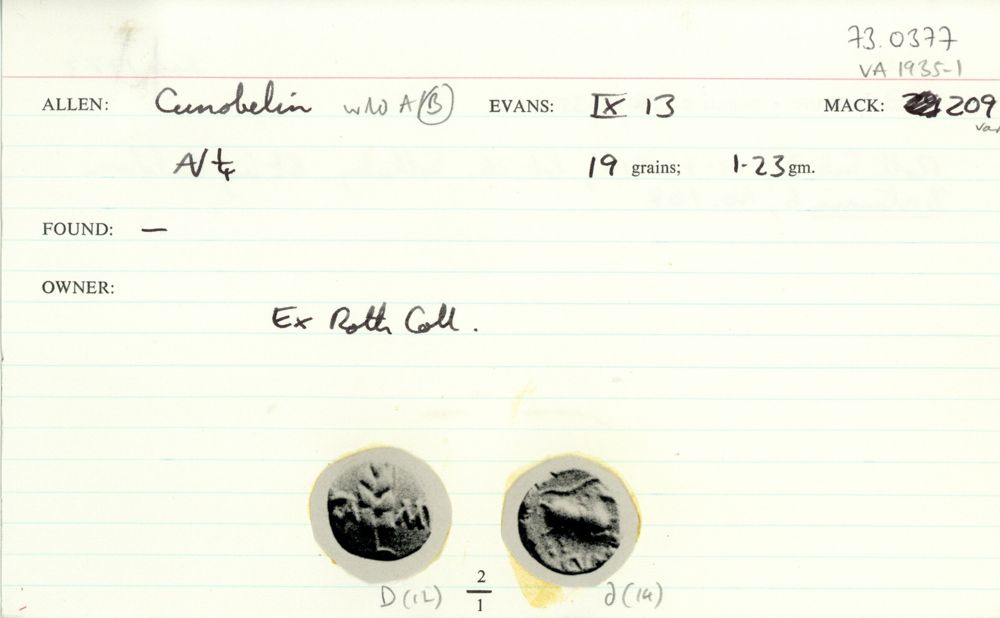 73.0377
VA 1935-1
ALLEN: Cunobelin A(B) EVANS: IX 13 MACK: 209
var
19 grains; 1.23 gm.
FOUND: —
OWNER:
Ex Roth Coll.
2
1
D(12) d(14)